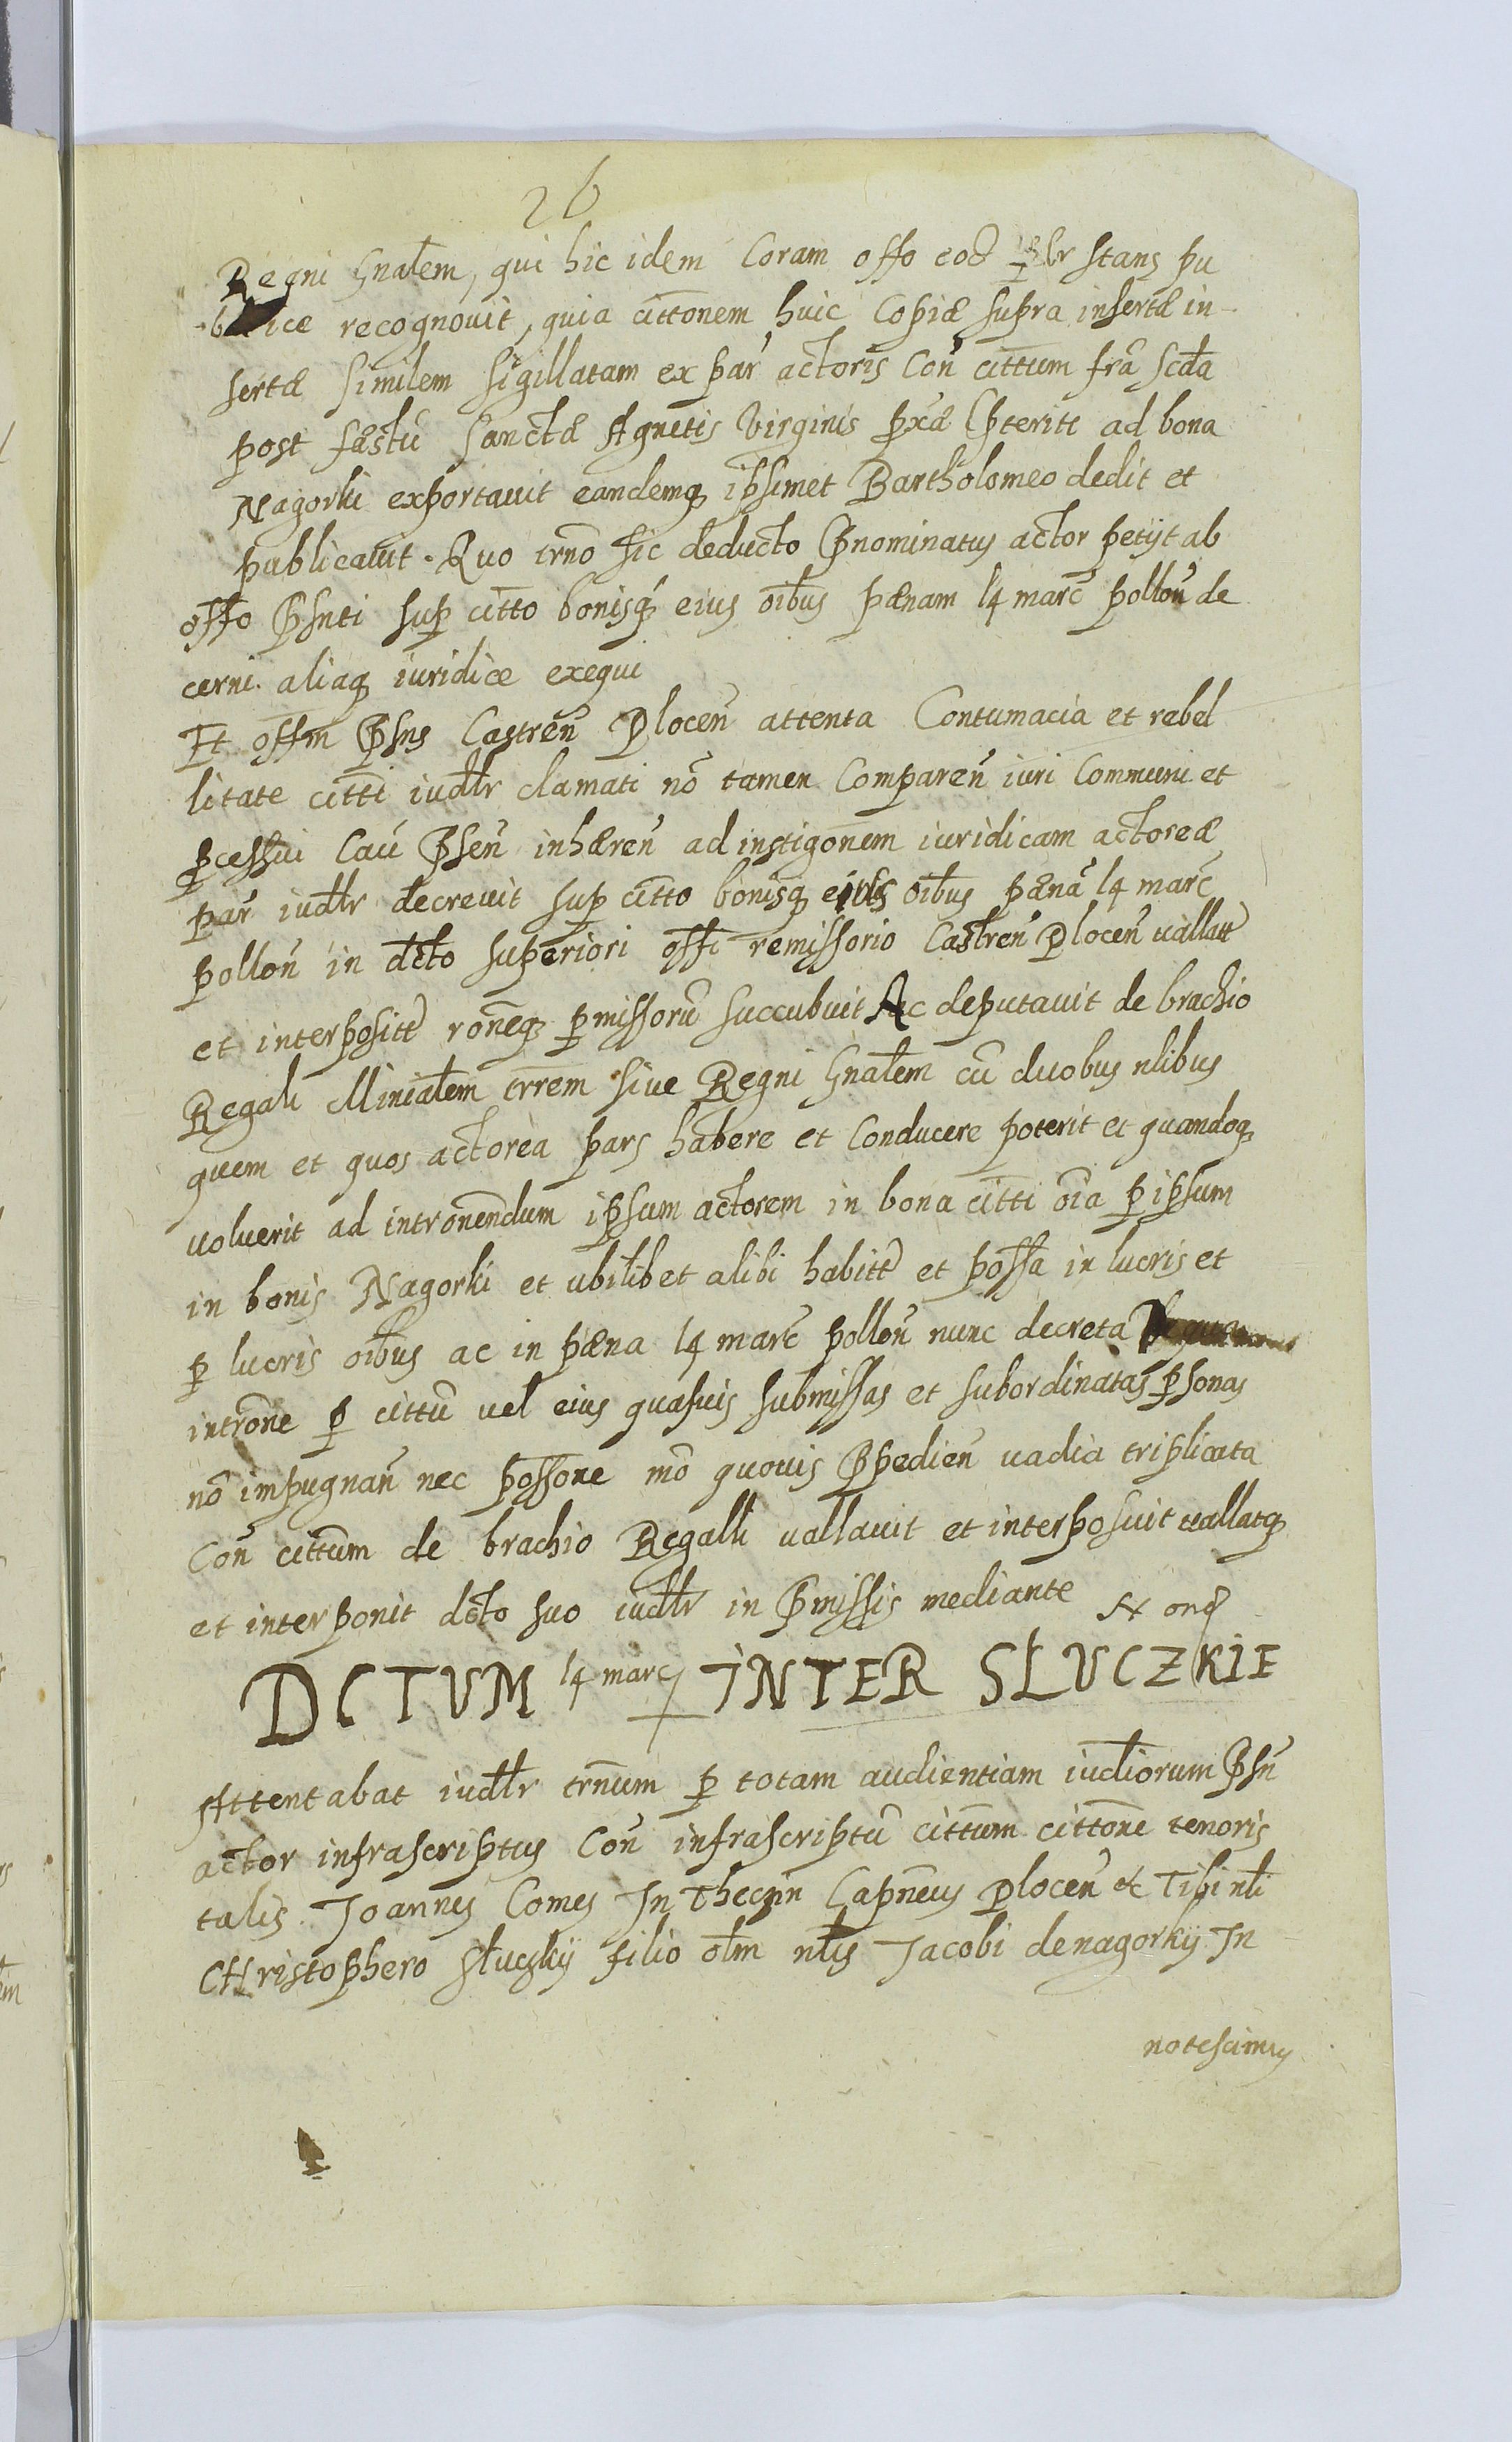 26
Regni Gnalem, qui hic idem Coram offo eod stans pu
blice recognouit, quia cittonem huic Copiæ supra insertæ in-
sertæ similem sigillatam ex par actoris Con cittum fra scda
post festu Sanctæ Agnetis Virginis pxæ Pterite ad bona
Nagorki exportauit eandemq ipsimet Bartholomeo dedit et
publicauit. Quo trno sic deducto Pnominatus actor petijt ab
offo Psnti sup citto bonisq eius oibus pænam 14 marc pollon de
cerni. aliaq iuridice exequi
Et offm Psns Castren Plocen attenta Contumacia et rebel
litate citti iudlr clamati no tamen Comparen iuri Communi et
pcessui Cau Psen inhæren ad instigonem iuridicam actoreæ
par iudlr decreuit sup citto bonisq eius oibus pæna 14 marc
pollon in dcto superiori offi remissorio Castren Plocen uallatt
et interposite roneq pmissoru succubuit Ac deputauit de brachio
Regali Minialem trrem siue Regni Gnalem cu duobus nlibus
quem et quos actorea pars habere et Conducere poterit et quandoq
uoluerit ad intronendum ipsum actorem in bona citti oia p ipsum
in bonis Nagorki et ubilibet alibi habitt et possa in lucris et
p lucris oibus ac in pæna 14 marc pollon nunc decreta
introne p cittu uel eius quasuis submissas et subordinatas psonas
no impugnan nec possone mo quouis Ppedien uadia triplicata
Con cittum de brachio Regalli uallauit et interposuit uallatq
et interponit dcto suo iudlr in Pmissis mediante
DCTUM 14 marc INTER SŁUCZKIE
Attentabat iudlr trnum p totam audientiam iudiciorum Psn
actor infrascriptus Con infrascriptu cittum cittone tenoris
talis. Joannes Comes In Theczin Capneus Plocen & Tibi nli
CHristophero Słuczkij filio olm nlis Jacobi de nagorkij In
notescimus